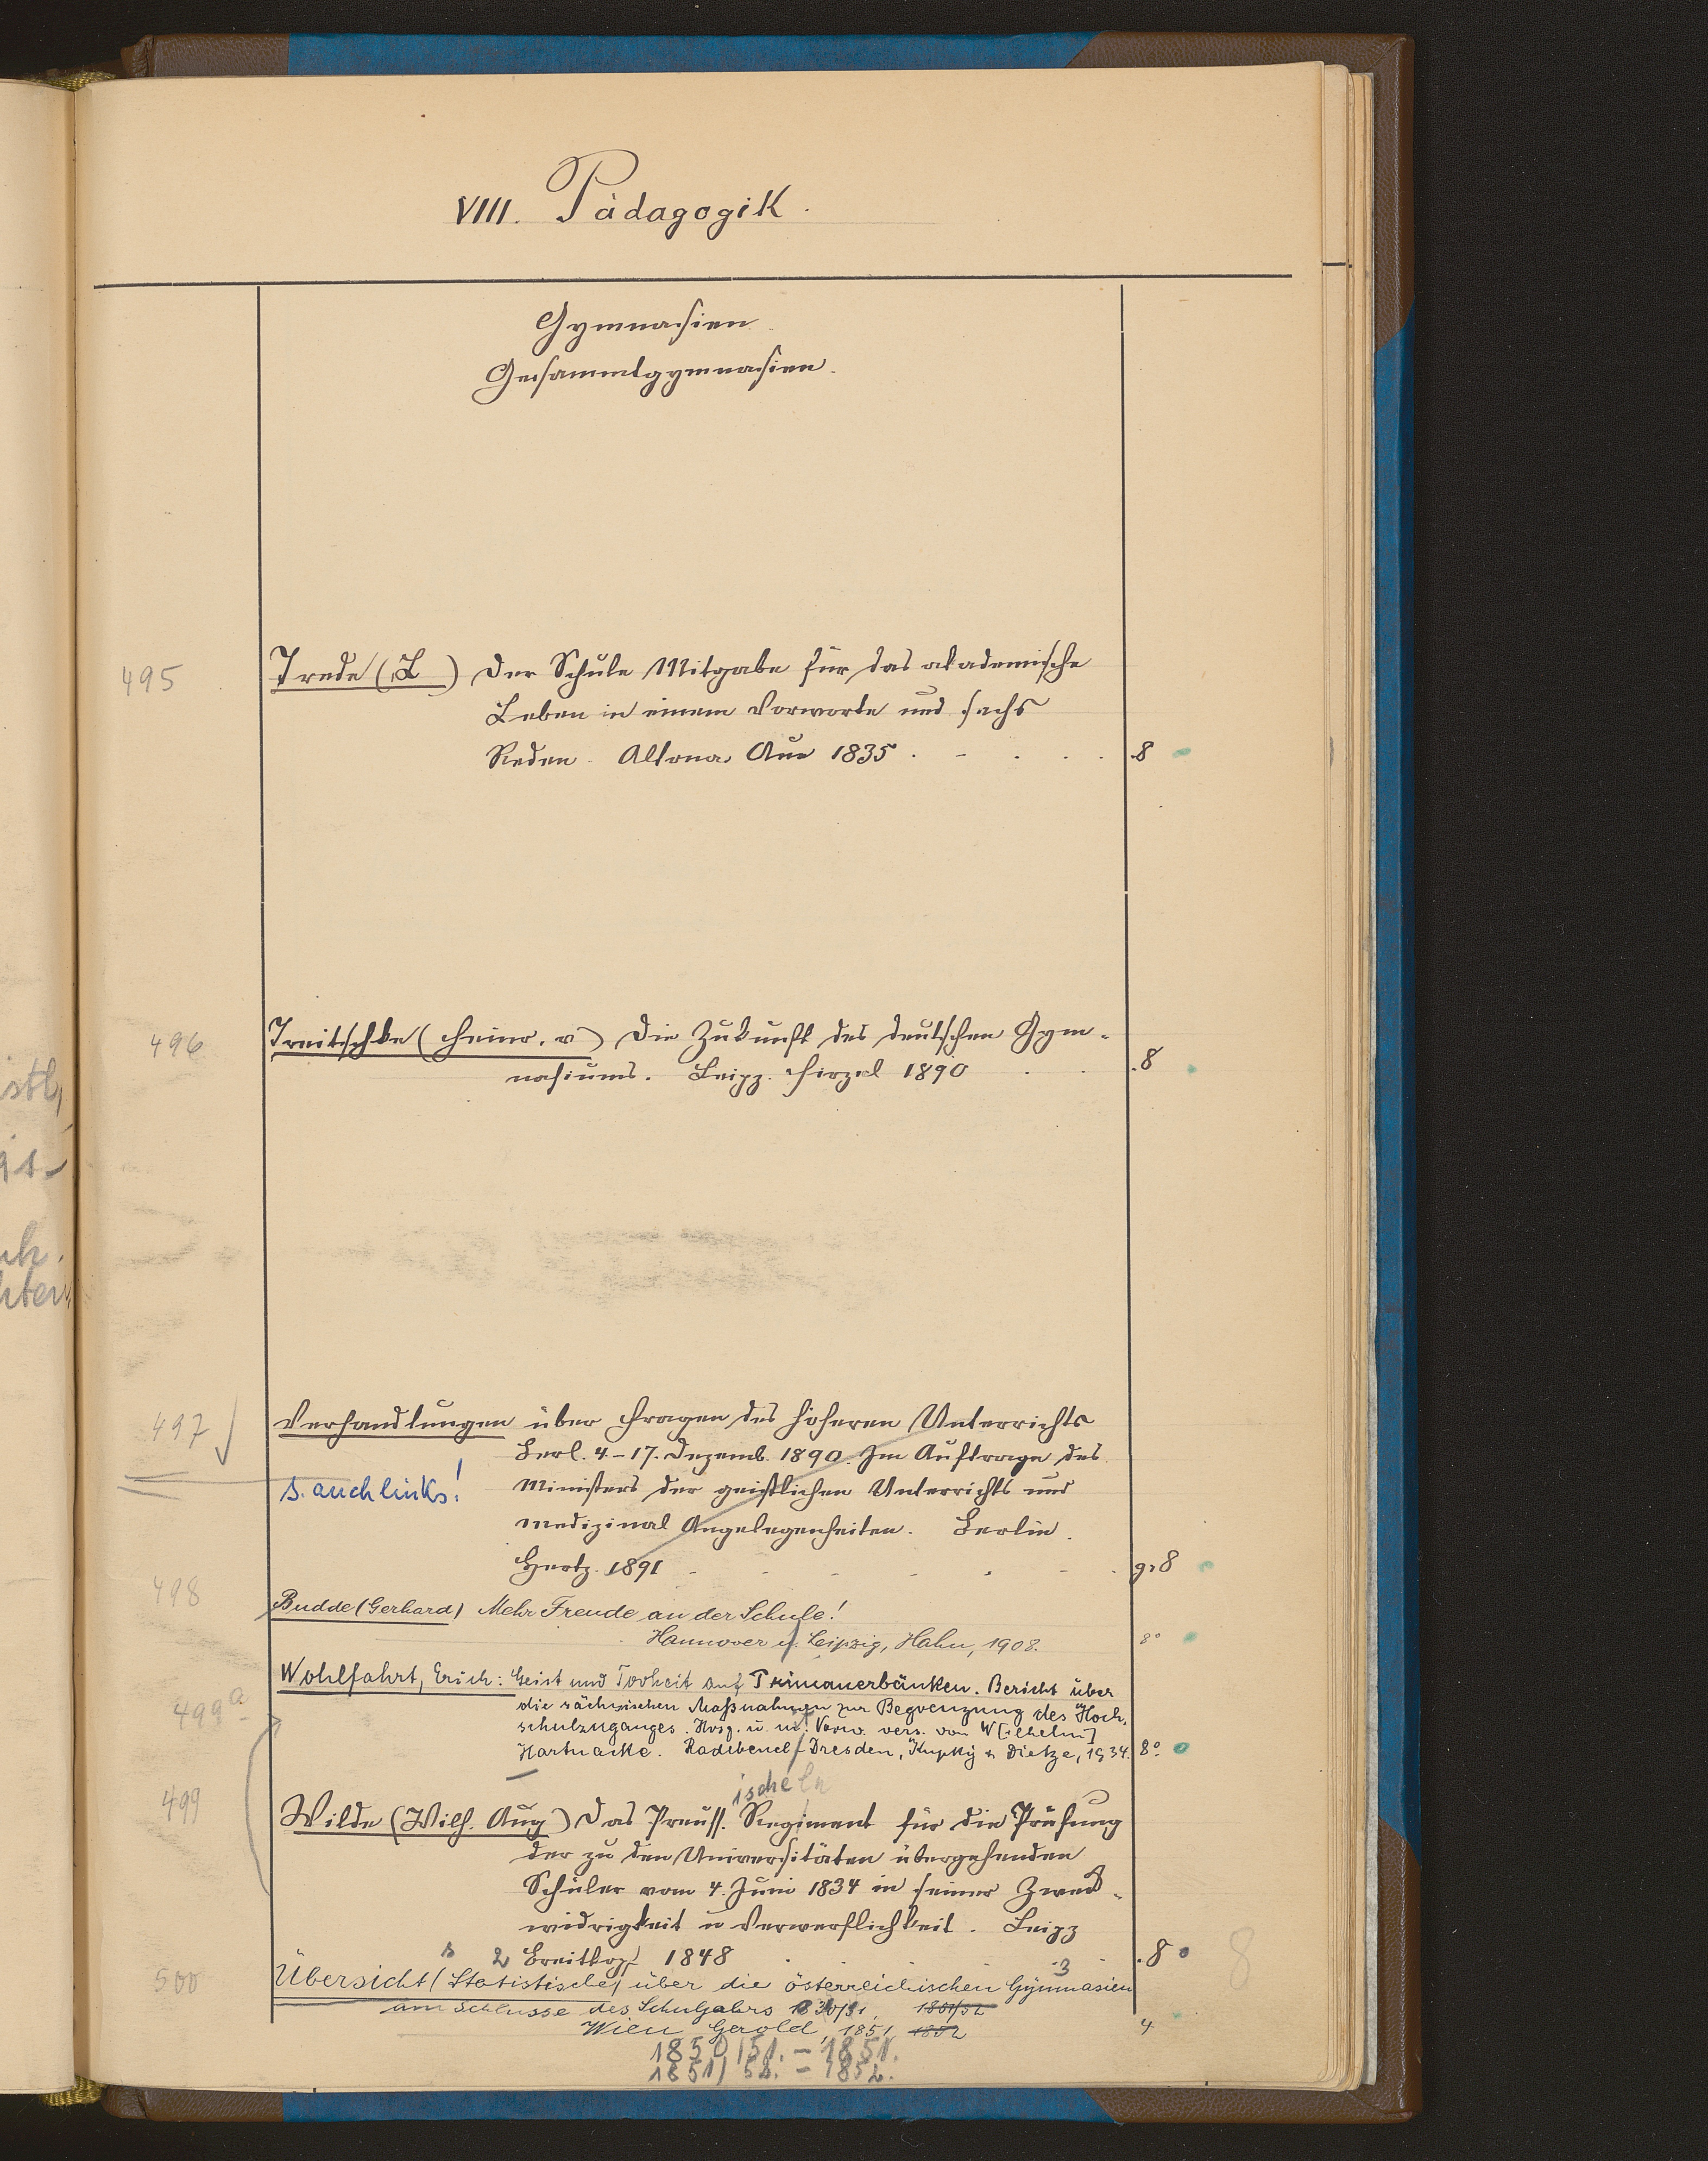 VIII. Pädagogik.
Gymnasien.
Gesammtgymnasien.
495 Trede (L ) Der Schule Mitgabe für das akademische
Leben in einem Vorworte und sechs
Reden. Altona, Aue 1835 . . . . . 8
496 Treitschke (Heinr. v) Die Zukunft des deutschen Gym-
nasiums. Leipz. Hirzel 1890 . . . 8
497 Verhandlungen über Fragen des höheren Unterrichts
Berl. 4-17. Dezemb. 1890. Im Auftrage des
s. auch links! Ministers der geistlichen Unterrichts und
medizinal Angelegenheiten. Berlin.
Hertz. 1891 . . . . . . gr 8
498 Budde (Gerhard) Mehr Freude an der Schule!
Hannover u. Leipzig, Hahn, 1908. 8°
499a Wohlfahrt, Erich: Geist und Torheit auf Primanerbänken. Bericht über
die sächsischen Maßnahmen zur Begrenzung des Hoch-
schulzuganges. Hrsg. u. m. Vorw. vers. von W[ilhelm]
Hartnacke. Radebeul/Dresden, Kupky & Dietze, 1934. 8°
ische
499 Wilde (Wilh. Aug) Das Preuss. Regiment für die Prüfung
der zu den Universitäten übergehenden
Schüler vom 4. Juni 1834 in seiner Zweck-
widrigkeit u Verwerflichkeit. Leipz
Breitkopf 1848 . 8 8
2 3
500 Übersicht (Statistische) über die österreichischen Gymnasien
am Schlusse des Schuljahrs 1850/51, 1851/52
Wien Gerold, 1851, 1852 4
1850/51. - 1851.
1851/52. - 1852.